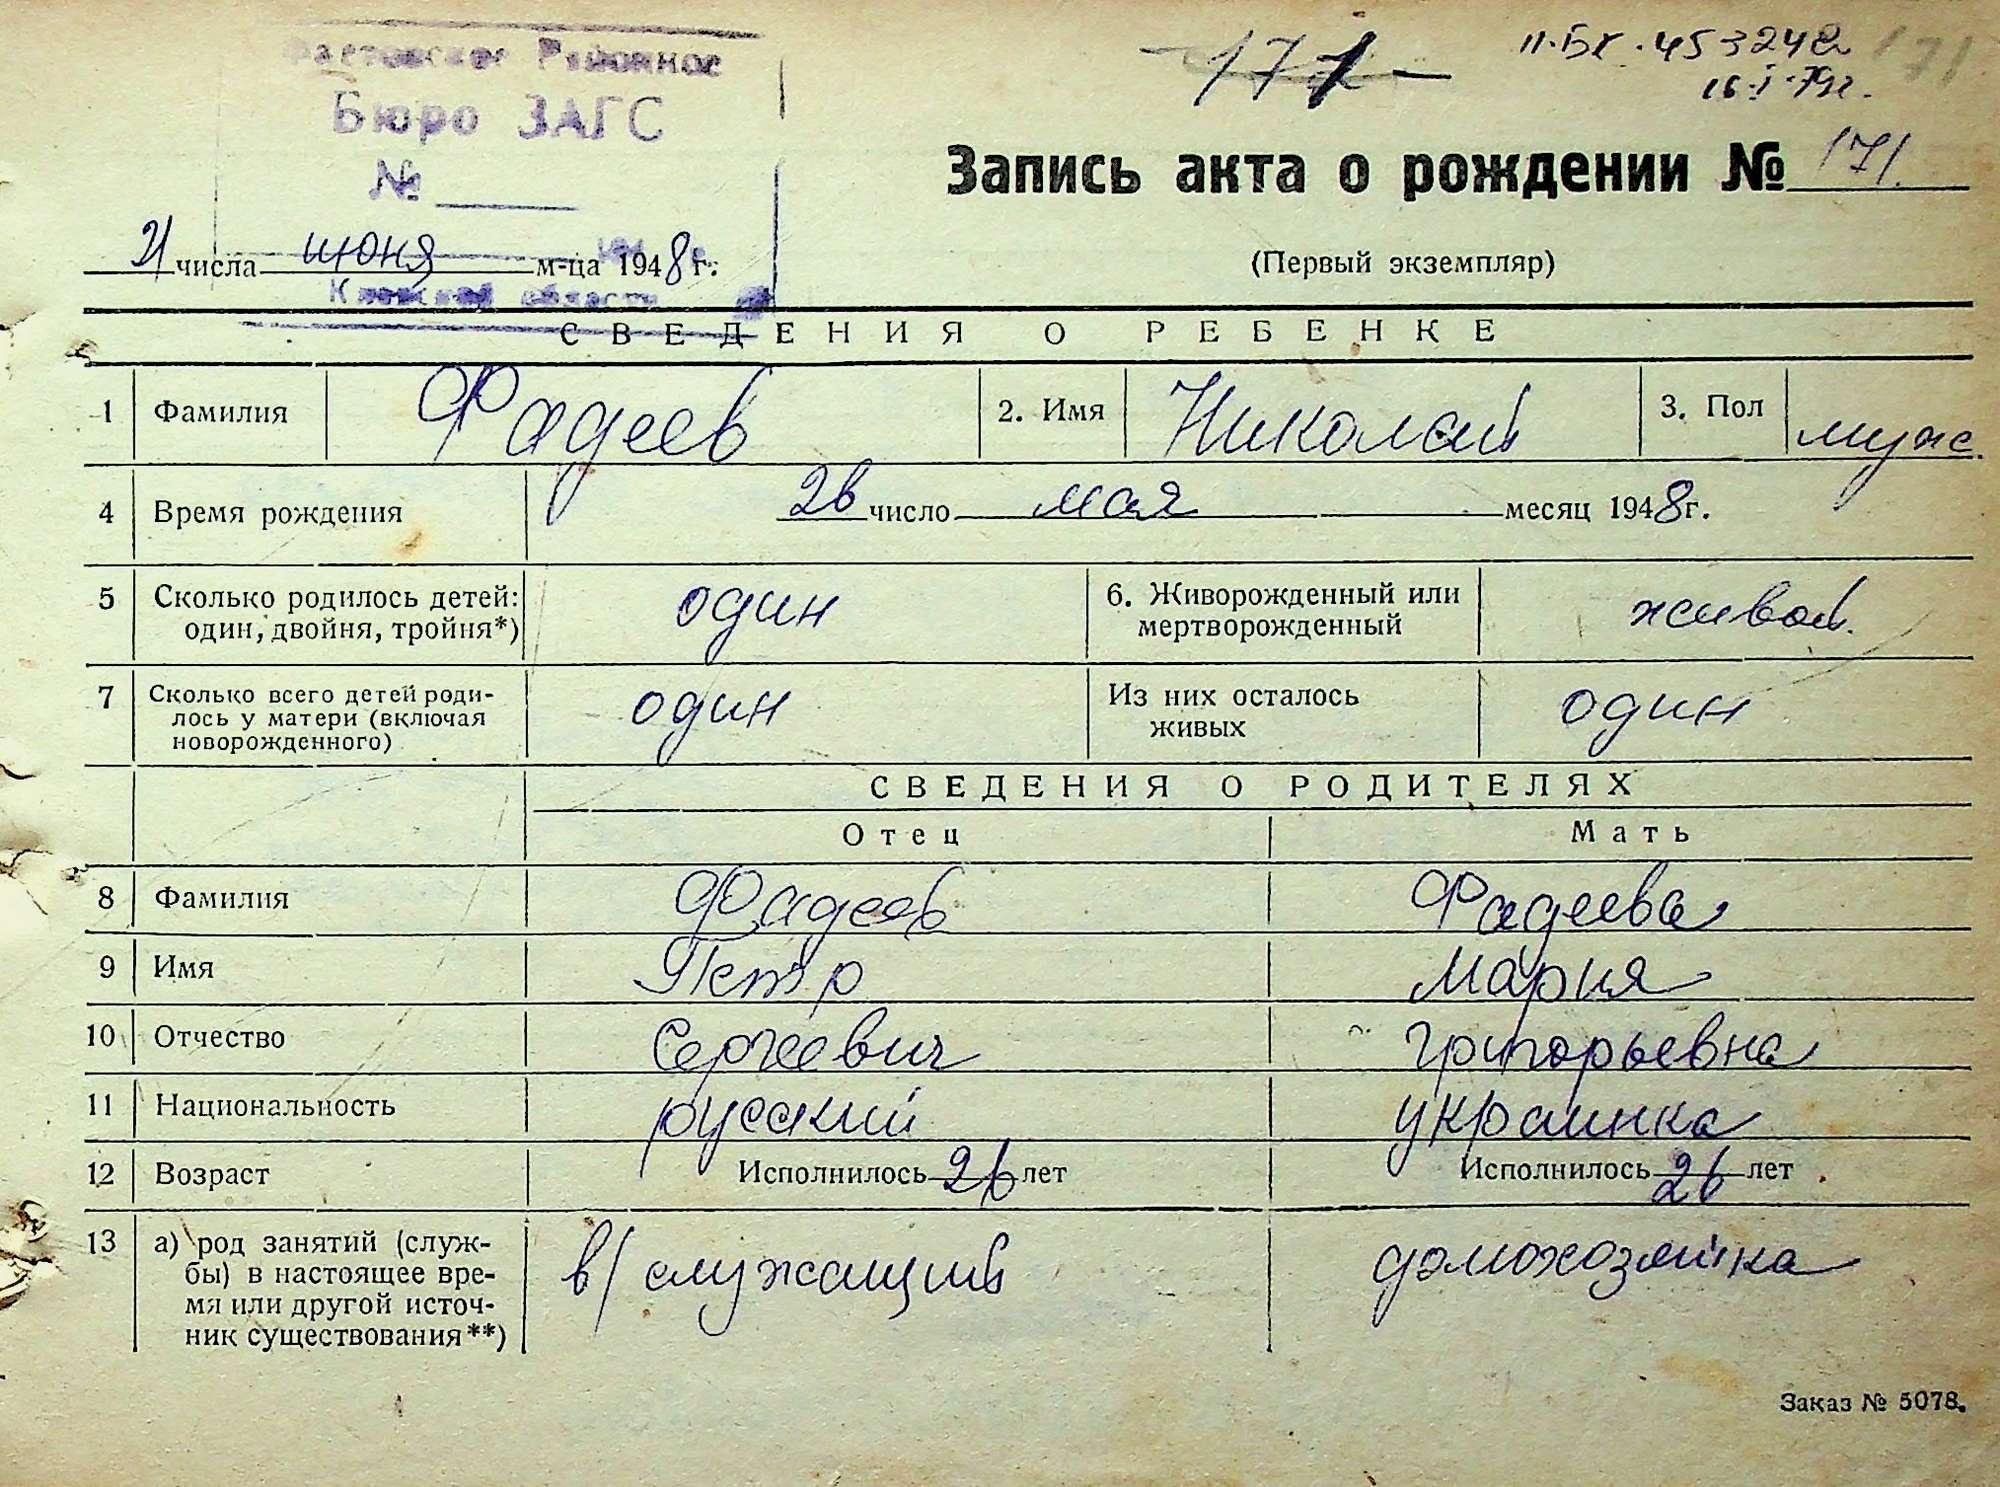 Районное
Бюро ЗАГС
№
171
II-БК 453242
16-I-79г.
171
Запись акта о рождении № 171.
(Первый экземпляр)
21 числа июня м-ца 1948 г.
Киевской области
СВЕДЕНИЯ О РЕБЕНКЕ
1 Фамилия Фадеев 2. Имя Николай 3. Пол муж.
4 Время рождения 26 число мая месяц 1948 г.
5 Сколько родилось детей: один 6. Живорожденный или живой.
один, двойня, тройня*) мертворожденный
7 Сколько всего детей роди- один Из них осталось один
лось у матери (включая живых
новорожденного)
СВЕДЕНИЯ О РОДИТЕЛЯХ
Отец Мать
8 Фамилия Фадеев Фадеева
9 Имя Петр Мария
10 Отчество Сергеевич Григорьевна
11 Национальность русский украинка
12 Возраст Исполнилось 26 лет Исполнилось 26 лет
13 а) род занятий (служ- в/служащий домохозяйка
бы) в настоящее вре-
мя или другой источ-
ник существования**)
Заказ № 5078.